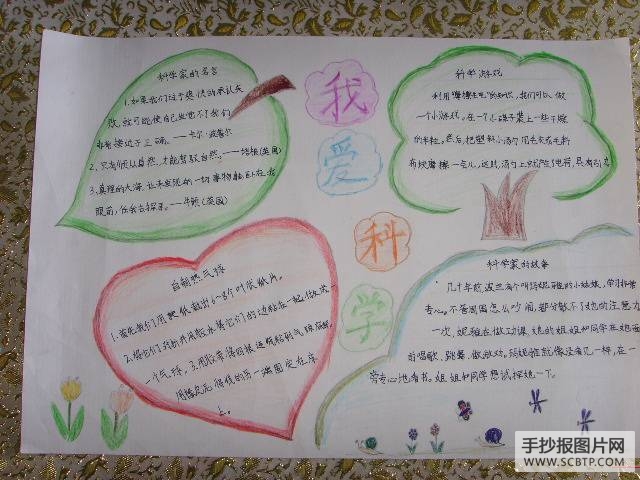 科学家的名言
1.如果我们过于爽快的承认失
败,就可能使自己发觉不了我们
非常接近于正确。——卡尔·波普尔
2、只有顺从自然,才能驾驭自然。——培根(英国)
3、真理的大海,让未发现的一切事物躺卧在我
眼前,任我去探寻。——牛顿(英国)
我
爱
科
学
科学游戏
利用"摩擦生电"的知识,我们可以做
一个小游戏。在一个小碟子装上一些干燥
的米粒,然后,把塑料小汤勺用毛衣或毛料
布快摩擦一会儿,这时,汤勺上就附有电荷,具有引力
自制热气球
1.首先我们用
纸裁出6-8个叶状纸片。
2.将它们
用胶水将它们的边粘在一起,做成
一个气球,3.用胶带
用橡皮泥
的另一端固定在桌
上。
科学家的故事
几十年前,波兰有个叫玛妮雅的小姑娘,学习非常
专心。不管周围怎么吵闹,都分散不了她的注意力
一次,妮雅在做功课,她的姐姐和同学在她面
前唱歌、跳舞、做游戏。玛妮雅就像没看见一样,在一
旁专心地看书。姐姐和同学想试探她一下。
手抄报图片网
WWW.SCBTP.COM